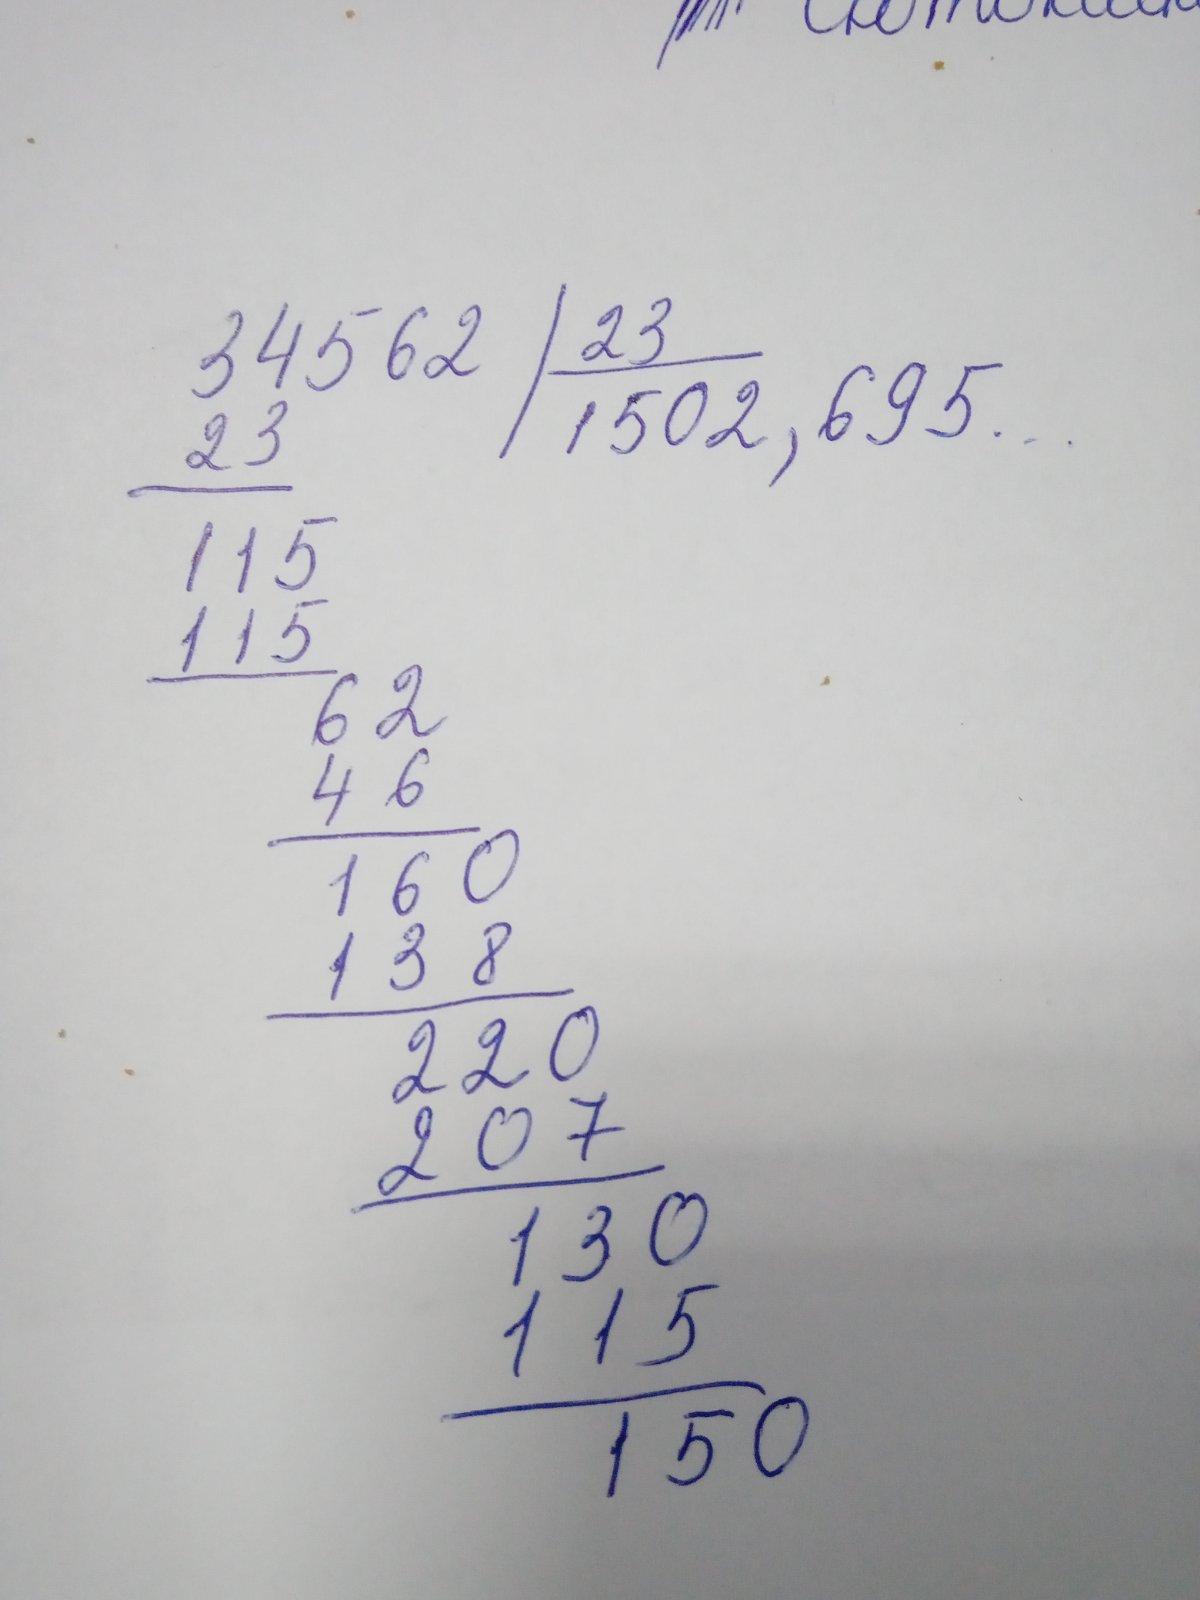 34562 | 23
23 1502,695...
115
115
62
46
160
138
220
207
130
115
150